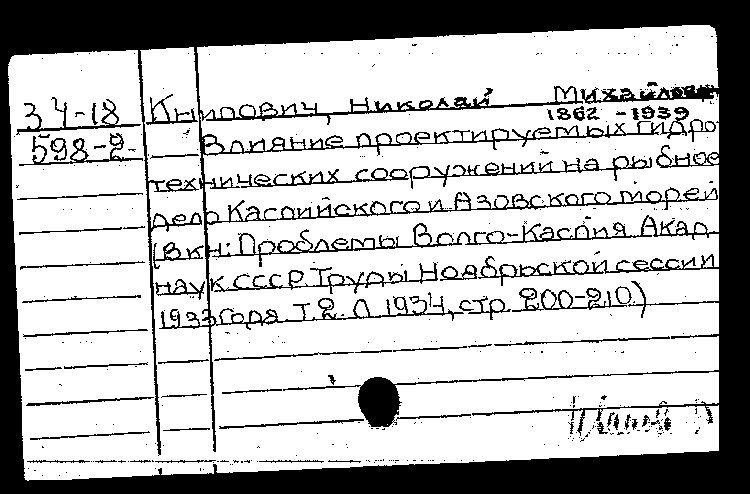 34-18 Книпович, Николай Михайлович
1862 - 1939
598-2. Влияние проектируемых гидро-
технических сооружений на рыбное
дело Каспийского и Азовского морей
(в кн: Проблемы Волго-Каспия Акад.
наук СССР. Труды Ноябрьской сессии
1933 года. Т. 2. Л 1934, стр. 200-210.)